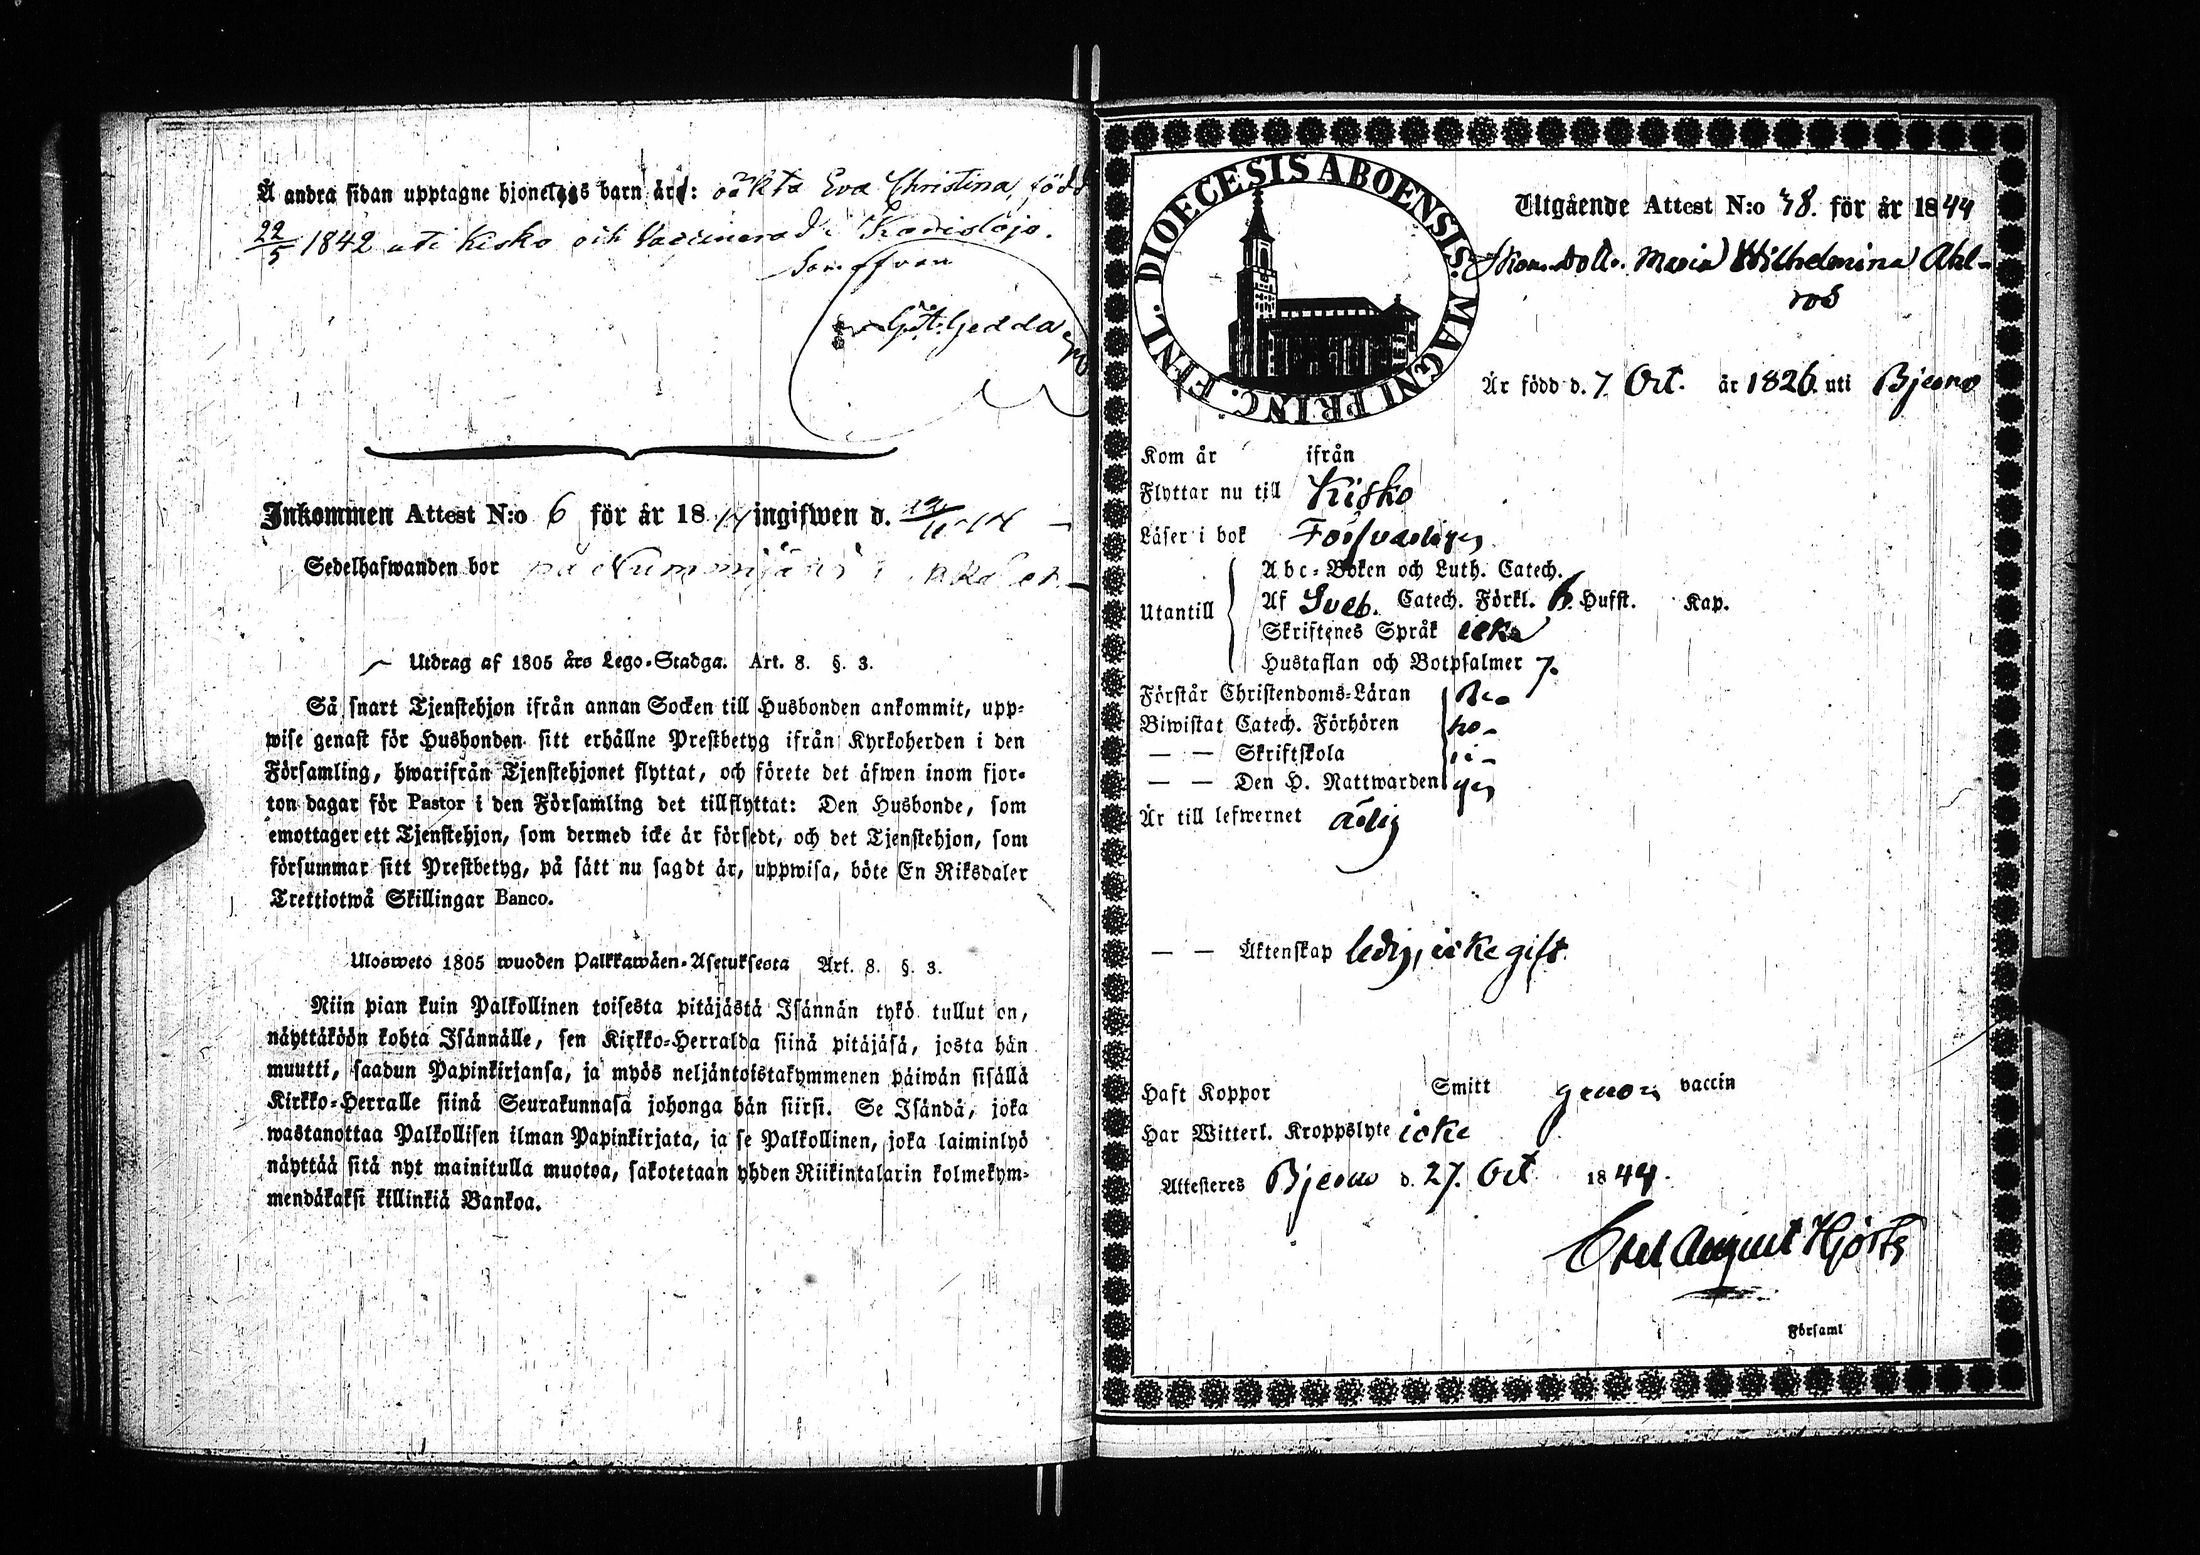 Å andra sidan upptagne hjonelags barn är: oäkta Eva Christina, född
22/5 1842 uti Kisko och Vaccinerad i Karislojo.
Gust. Gedda
Inkommen Attest N:o 6 för år 1844 ingifwen d.
Sedelhafwanden bor på Nummijärvi
Utdrag af 1805 års Lego-Stadga. Art. 8. §. 3.
Så snart Tjenstehjon ifrån annan Socken till Husbonden ankommit, upp-
wise genast för Husbonden sitt erhållne Prestbetyg ifrån Kyrkoherden i den
Församling, hwarifrån Tjenstehjonet flyttat, och förete det äfwen inom fjor-
ton dagar för Pastor i den Församling det tillflyttat: Den Husbonde, som
emottager ett Tjenstehjon, som dermed icke är försedt, och det Tjenstehjon, som
försummar sitt Prestbetyg, på sätt nu sagdt är, uppwisa, böte En Riksdaler
Trettiotwå Skillingar Banco.
Ulosweto 1805 wuoden Palkkawäen-Asetuksesta Art. 8. §. 3.
Niin pian kuin Palkollinen toisesta pitäjästä Isännän tykö tullut on,
näyttäköön kohta Isännälle, sen Kirkko-Herralda siinä pitäjäsä, josta hän
muutti, saadun Papinkirjansa, ja myös neljäntoistakymmenen päiwän sisällä
Kirkko-Herralle siinä Seurakunnasa johonga hän siirsi. Se Isändä, joka
wastanottaa Palkollisen ilman Papinkirjata, ja se Palkollinen, joka laiminlyö
näyttää sitä nyt mainitulla muotoa, sakotetaan yhden Riikintalarin kolmekym-
mendäkaksi killinkiä Bankoa.
DIOECESIS ABOENSIS. MAGNI PRINC. FINL.
Utgående Attest N:o 48. för år 1844
Maria Wilhelmina Ahl-
ros
Är född d. 7. Oct. år 1826 uti Bjerno
Kom år ifrån
Flyttar nu till Kisko
Läser i bok Försvarligen
Abc-Boken och Luth. Catech.
Utantill Af Sveb. Catech. Förkl. 6. Hufst. Kap.
Skriftenes Språk icke
Hustaflan och Botpsalmer 7.
Förstår Christendoms-Läran Be-
Biwistat Catech. Förhören hö-
— — Skriftskola ri-
— — Den H. Nattwarden gen
Är till lefwernet ärlig
— — Äktenskap ledig, icke gift
Haft Koppor Smitt genom vaccin
Har Witterl. Kroppslyte icke
Attesteres Bjerno d. 27. Oct 1844.
August Hjorth
Församl